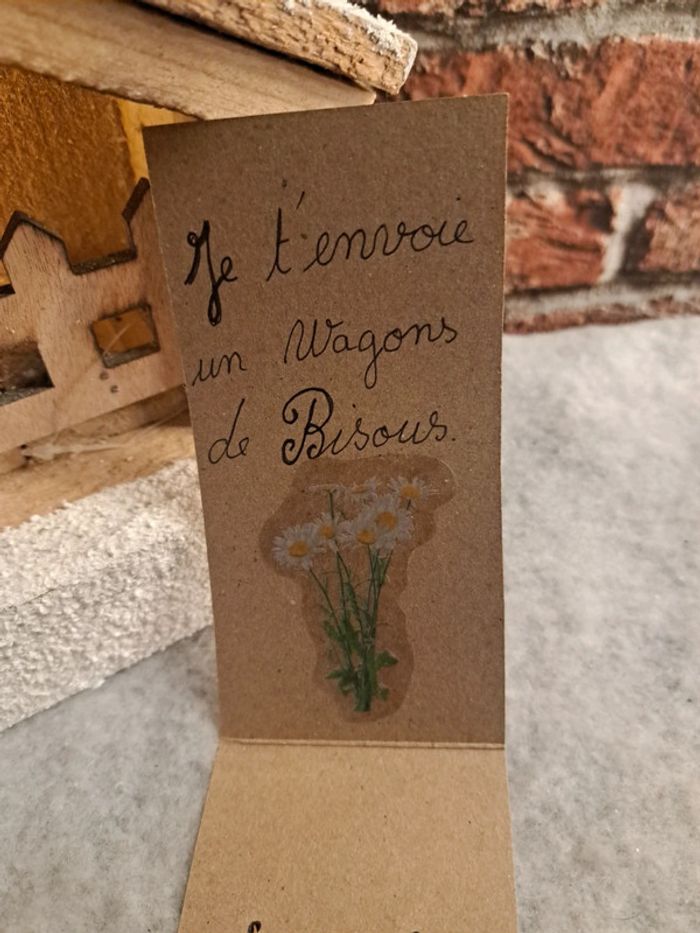 Je t'envoie
un Wagons
de Bisous.